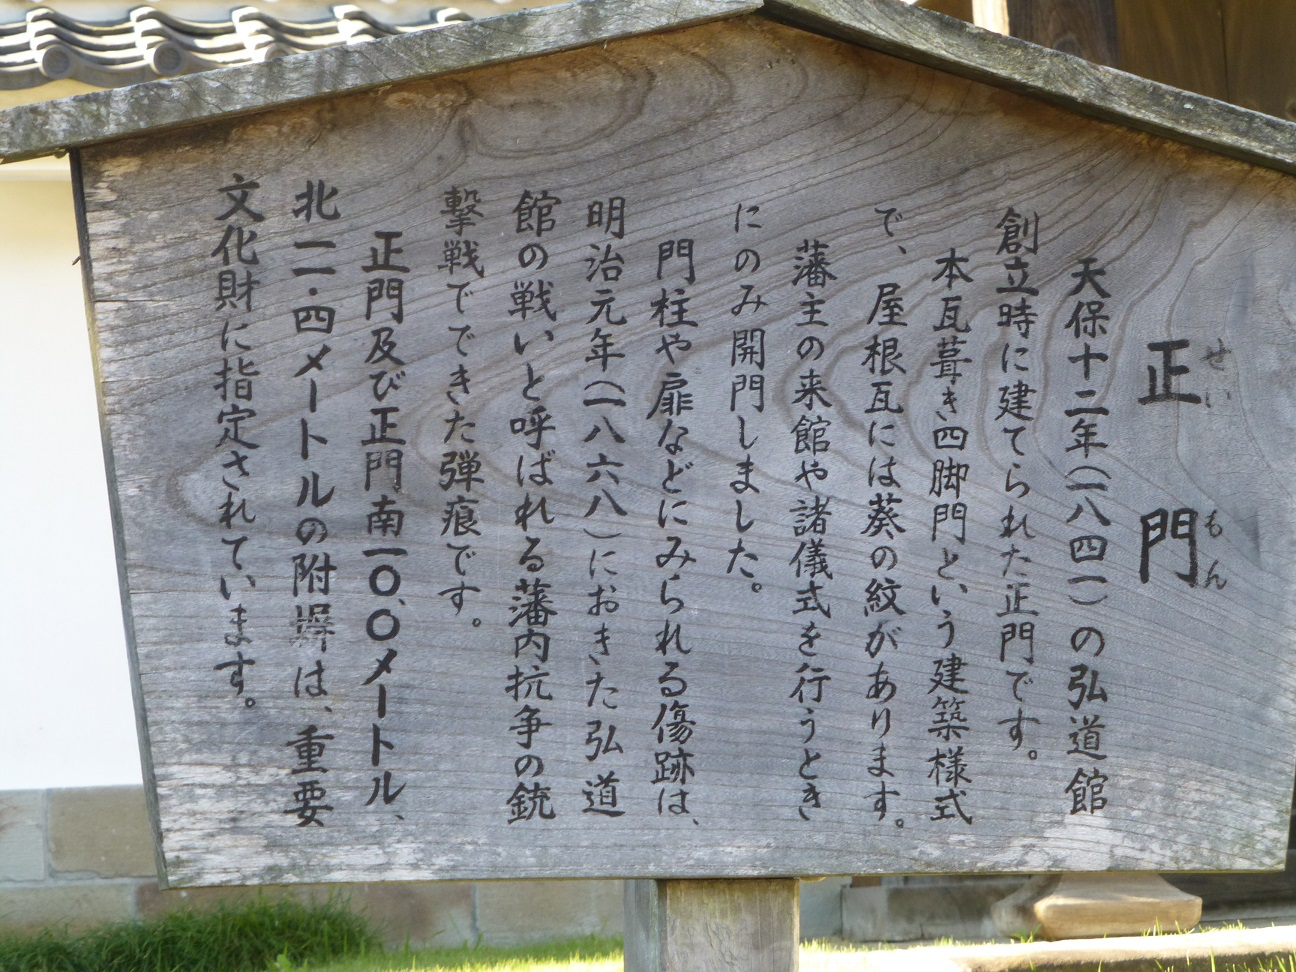 正門
せいもん
天保十二年(一八四一)の弘道館
創立時に建てられた正門です。
本瓦葺き四脚門という建築様式
で、屋根瓦には葵の紋があります。
藩主の来館や諸儀式を行うとき
にのみ開門しました。
門柱や扉などにみられる傷跡は、
明治元年(一八六八)におきた弘道
館の戦いと呼ばれる藩内抗争の銃
撃戦でできた弾痕です。
正門及び正門南一〇、〇メートル、
北一一・四メートルの附塀は、重要
文化財に指定されています。